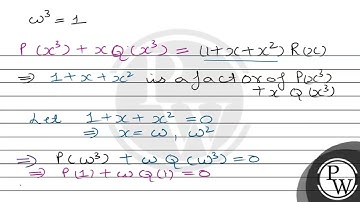 ω³ = 1
P(x³) + x Q(x³) = (1+x+x²) R(x)
⇒ 1+x+x² is a factor of P(x³) + x Q(x³)
Let 1+x+x² = 0
⇒ x = ω, ω²
⇒ P(ω³) + ω Q(ω³) = 0
⇒ P(1) + ω Q(1) = 0
P
W